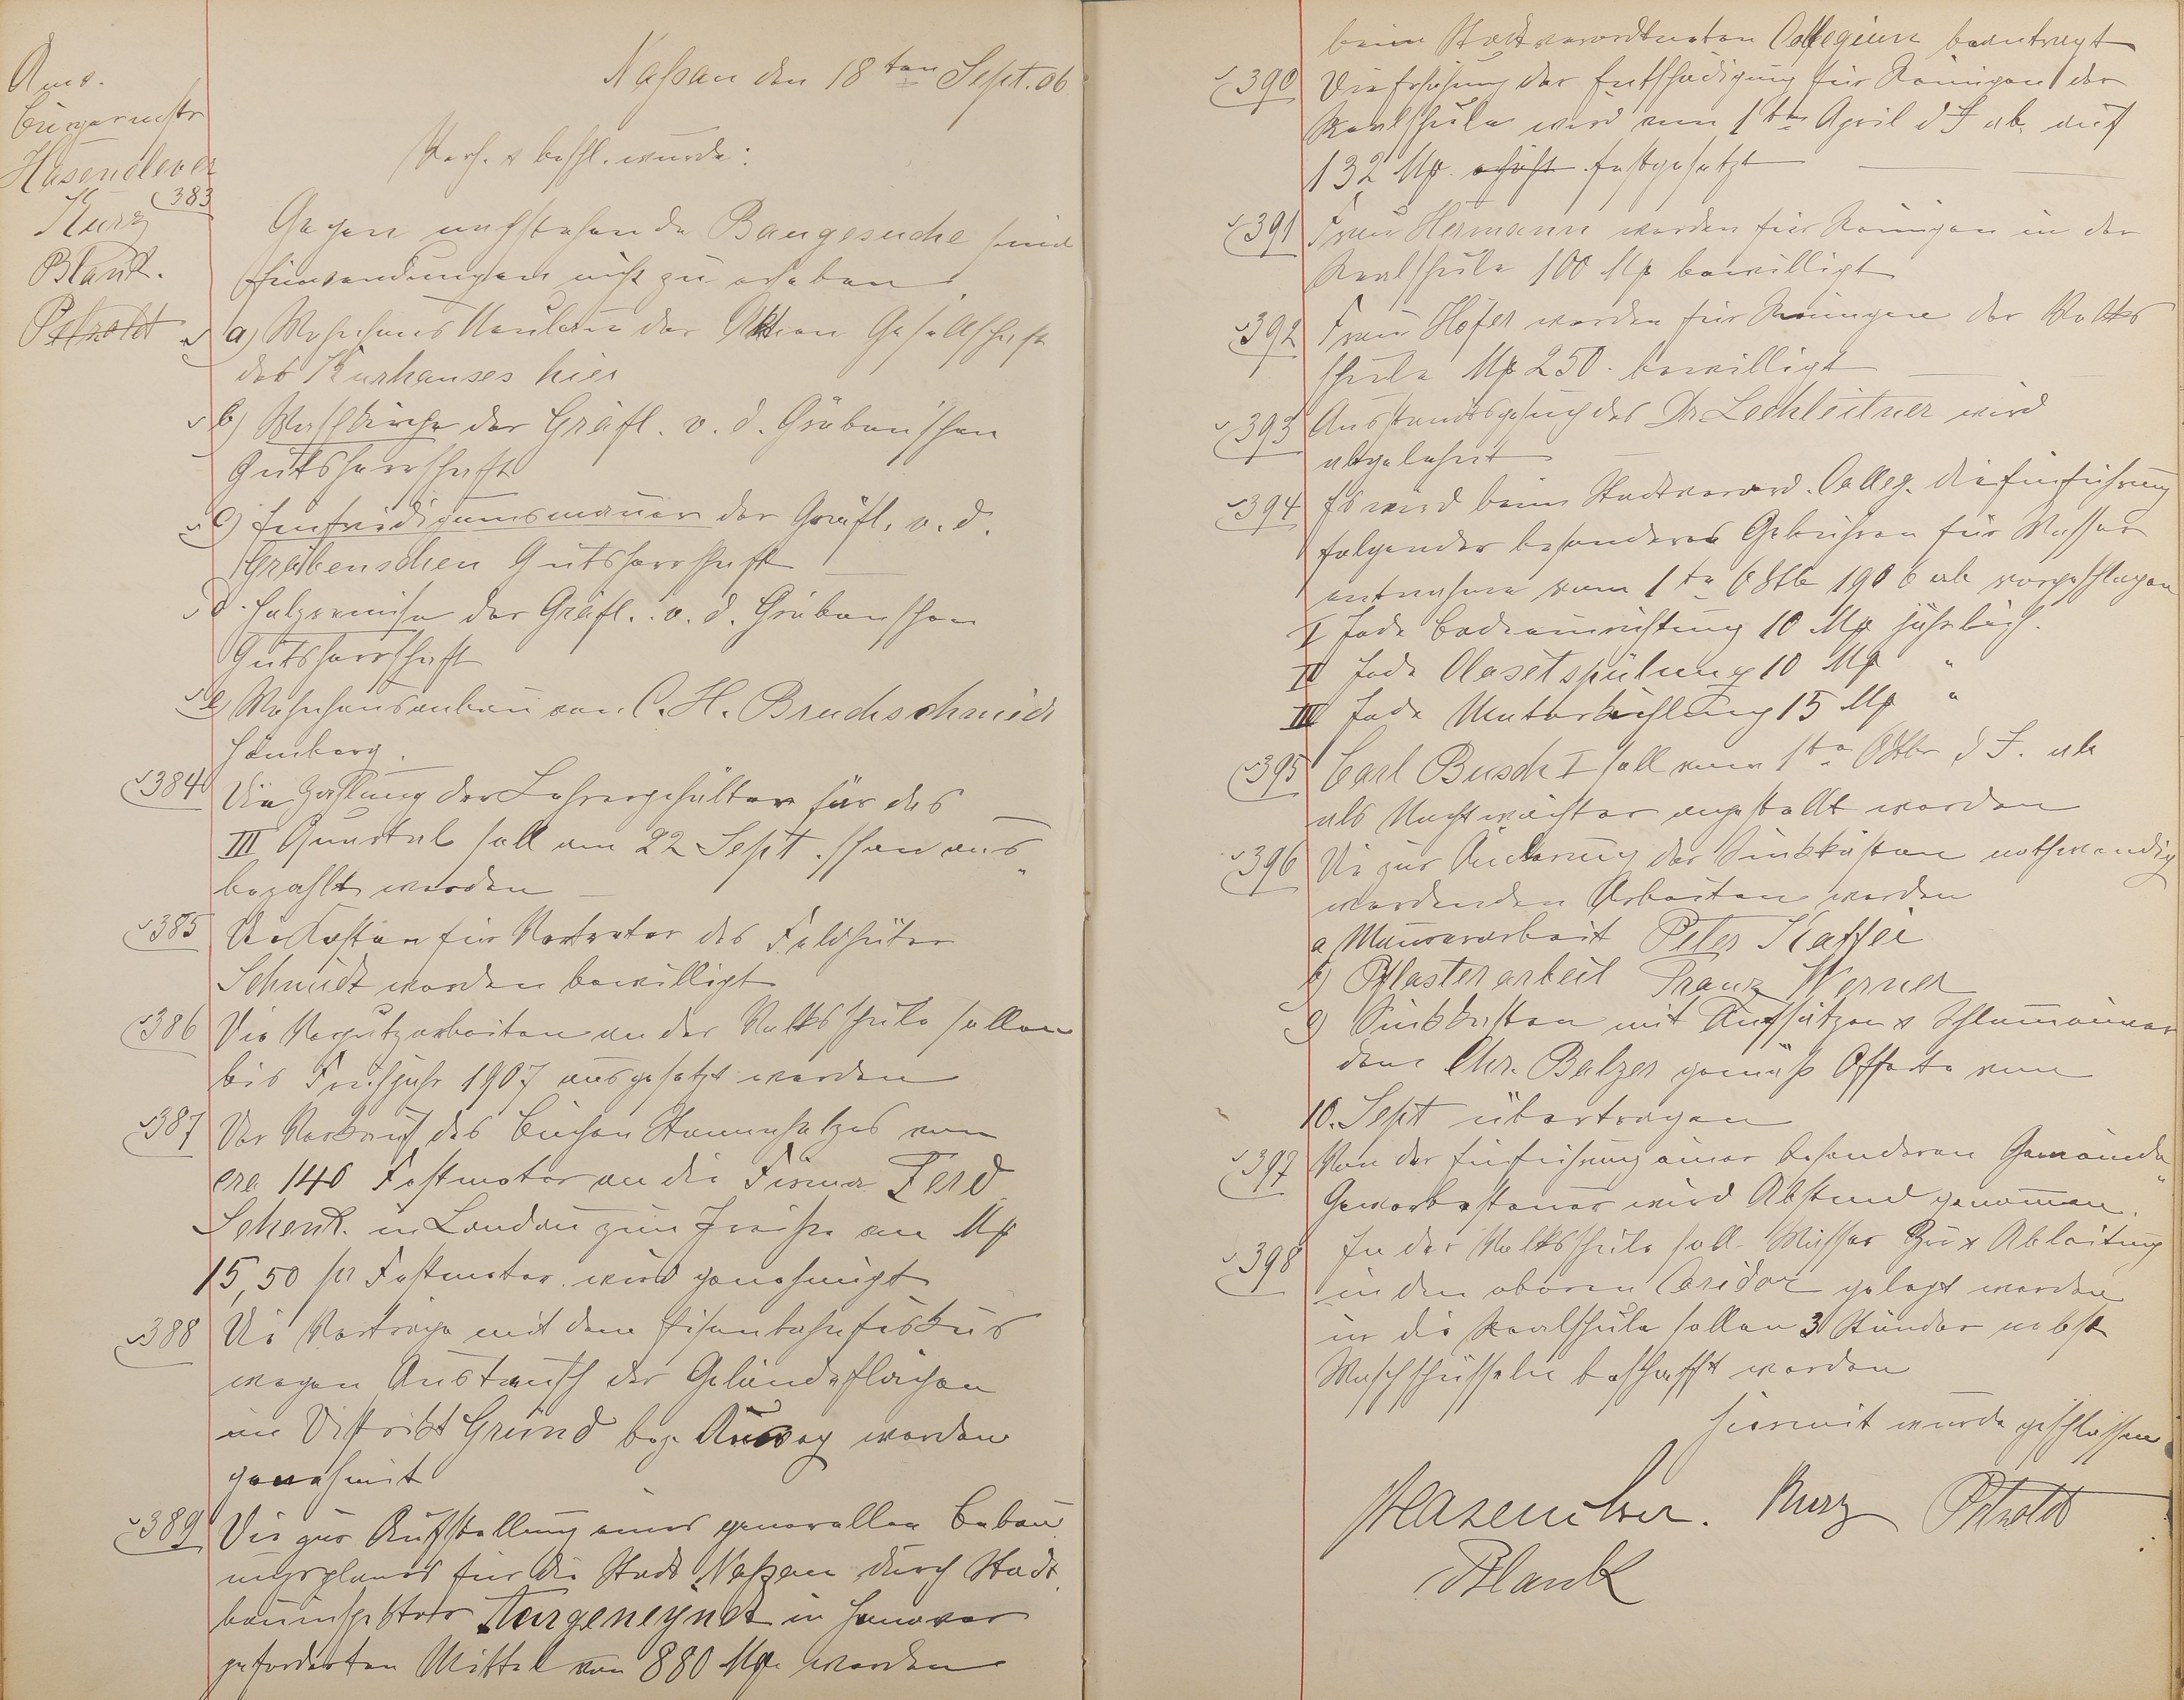 Anw.
Bürgermstr
Hasenclever
Kurz
Blank.
Petzoldt
Naßau den 18ten Sept. 06
Verh. & beschl. wurde:
383
Gegen nachstehende Baugesuche sind
Einwendungen nicht zu erheben
a) Wohnhaus Neubau der Aktien Gesellschaft
des Kurhauses hier
b) Waschküche der Gräfl. v. d. Gröben'schen
Gutsherrschaft
c) Einfriedigungsmauer der Gräfl. v. d.
Gröbenschen Gutsherrschaft
d. Holzremise der Gräfl. v. d. Gröben'schen
Gutsherrschaft
e) Wohnhausanbau von C. H. Bruchschmidt
Hömberg.
384 Die Zahlung der Lehrergehälter für das
III Quartal soll am 22 Sept. schon aus-
bezahlt werden
385 Die Kosten für Vertreter des Feldhüter
Schmidt werden bewilligt
386 Die Verputzarbeiten an der Volksschule sollen
bis Frühjahr 1907 ausgesetzt werden
387 Der Verkauf des Buchen Stammholzes von
cra 140 Festmeter an die Firma Ferd
Schenk in Landau zum Preise von Mk
15,50 pr Festmeter wird genehmigt
388 Die Verträge mit dem Eisenbahnfiskus
wegen Austausch der Geländeflächen
im Distrikt Grund bez. Auweg werden
genehmit
389 Die zur Aufstellung eines generellen Bebau
ungsplanes für die Stadt Naßau durch Stadt
bauinspektor in Hanover
geforderten Mittel von 880 Mk werden
beim Stadtverordneten Collegium beantragt
390 Die Erhöhung der Entschädigung für Reinigen der
Realschule wird vom 1ten April d J ab auf
132 Mk erhöht festgesetzt
391 Frau Hermann werden für Reinigen in der
Realschule 100 Mk bewilligt
392 Frau Höfer werden für Reinigen der Volks
schule Mk 250. bewilligt
393 Ausstandsgesuch des Dr. Lechleitner wird
abgelehnt
394 Es wird beim Stadtverord. Colleg. die Einführung
folgender besonderer Gebühren für Wasser
entnahme vom 1ten Oktb 1906 ab vorgeschlagen
I Jede Badeeinrichtung 10 Mk jährlich.
II Jede Closetspülung 10 Mk "
III Jede Motorkühlung 15 Mk "
395 Carl Busch I soll vom 1ten Oktbr d J. ab
als Nachtwächter angestellt werden
396 Die zur Änderung der Sinkkasten nothwendig
werdenden Arbeiten werden
a Maurerarbeit Peter Kaffei
b) Pflasterarbeit Franz Werner
c) Sinkkasten mit Aufsätzen & Schlameimer
dem Chr. Balzer gemäß Offerte vom
10. Sept übertragen
397 Von der Einführung einer besonderen Gemeinde-
Gewerbesteuer wird Abstand genommen.
398 In der Volksschule soll Wasser Zu & Ableitung
in den oberen Coridor gelegt werden
in die Realschule sollen 3 Ständer nebst
Waschschüsseln beschafft werden
Hiermit wurde geschlossen
Hasenclever. Kurz Petzoldt
Blank